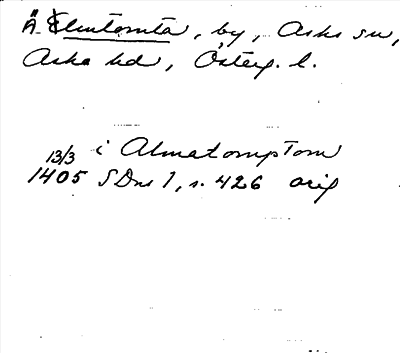 Ä. Elmtomta, by, Asks sn,
Aska hd, Österg. l.
13/3 i Almatomptom
1405 SDns 1, s. 426 orig